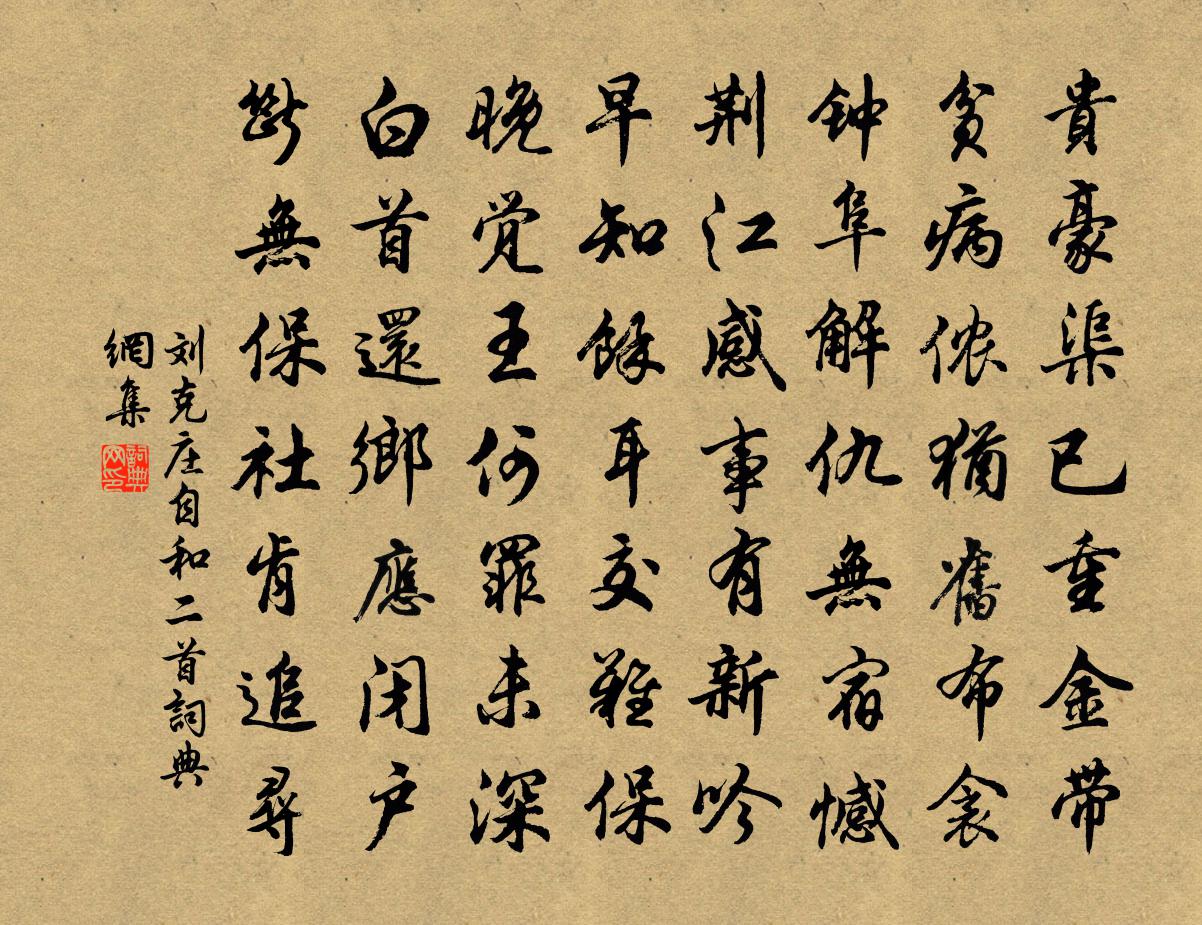 貴豪渠已重金带
貧病侬猶舊布衾
钟阜解仇無宿憾
荆江感事有新吟
早知餘耳交難保
晚觉王何罪未深
白首還鄉應闭户
斷無保社肯追尋
刘克庄自和二首詞典
網集
詞典
网印